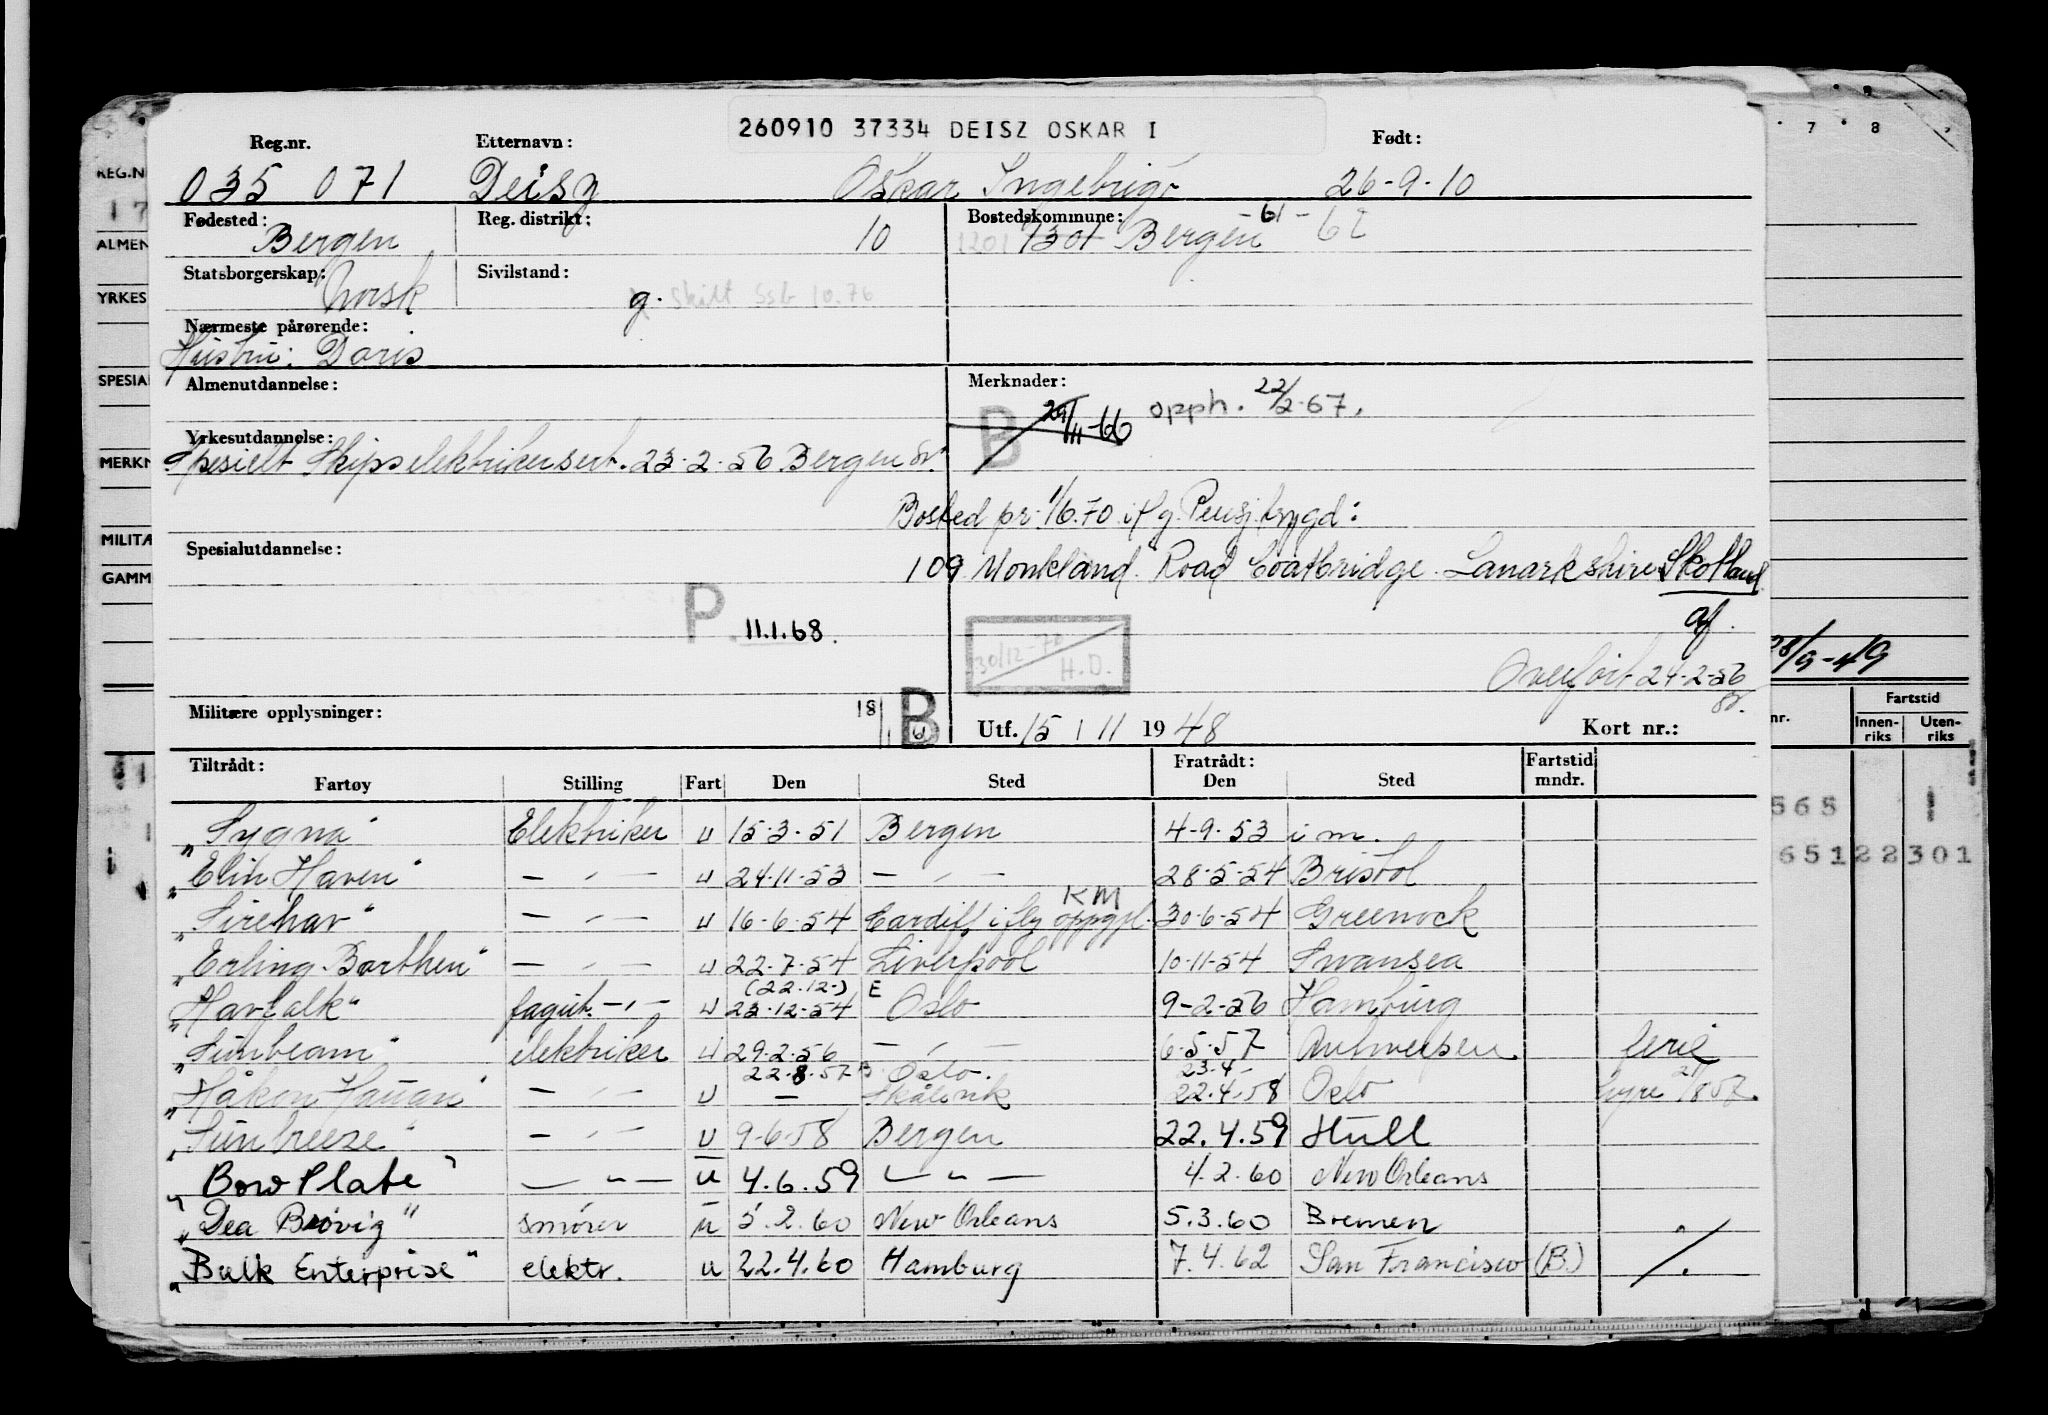 260910 37334 DEISZ OSKAR I
Reg.nr. Etternavn: Født:
035 071 Deisz Oskar Ingebrigt 26-9-10
Fødested: Reg. distrikt: Bostedskommune: -61-62
Bergen 10 1201 1301 Bergen
Statsborgerskap: Sivilstand:
Norsk g. Skilt Ssb 10.76
Nærmeste pårørende:
Hustru: Doris
Almenutdannelse: Merknader:
B 29/11-66 opph. 22/2-67.
Yrkesutdannelse:
Spesielt Skipselektrikersert. 23-2-56 Bergen
Bosted pr. 1/6.70 iflg. Pensj.trygd:
Spesialutdannelse:
109 Monkland Road Coatbridge. Lanarkshire Skotland
P. 11.1.68.
30/12-70 H.D.
Overført 24-2-56
Militære opplysninger: 18 B Utf. 15 / 11 1948 Kort nr.:
Tiltrådt: Fratrådt: Fartstid
Fartøy Stilling Fart Den Sted Den Sted mndr.
"Sygna" Elektriker u 15-3-51 Bergen 4-9-53 i m.
"Elin Haven" — " — u 24-11-53 — " — 28-5-54 Bristol
KM
"Sirehav" — " — u 16-6-54 Cardiff iflg oppgj. 30-6-54 Greenock
"Erling Borthen" — " — u 22-7-54 Liverpool 10-11-54 Swansea
(22.12-) E
"Havfalk" fagut. — " — u 23-12-54 Oslo 9-2-56 Hamburg
"Sunbeam" elektriker u 29-2-56 — " — 6-5-57 Antwerpen ferie
22-8-57 Oslo. 23-4-
"Håkon Hauan" — " — u — Skålevik 22.4.58 Oslo hyre 21/8 57.
"Sunbreeze" — " — u 9-6-58 Bergen 22.4.59 Hull
"Bow Plate" — " — u 4.6.59 — " — 4.2.60 New Orleans
"Dea Brøvig" smører u 5.2.60 New Orleans 5.3.60 Bremen
"Bulk Enterprise" elektr. u 22.4.60 Hamburg 7.4.62 San Francisco (B.) ./.
REG.N
17
ALMEN
YRKES
SPESIAL
MERKN
MILITÆ
GAMM
7 8
28/9-49
nr. Fartstid
Innenriks Utenriks
565 1
65122301